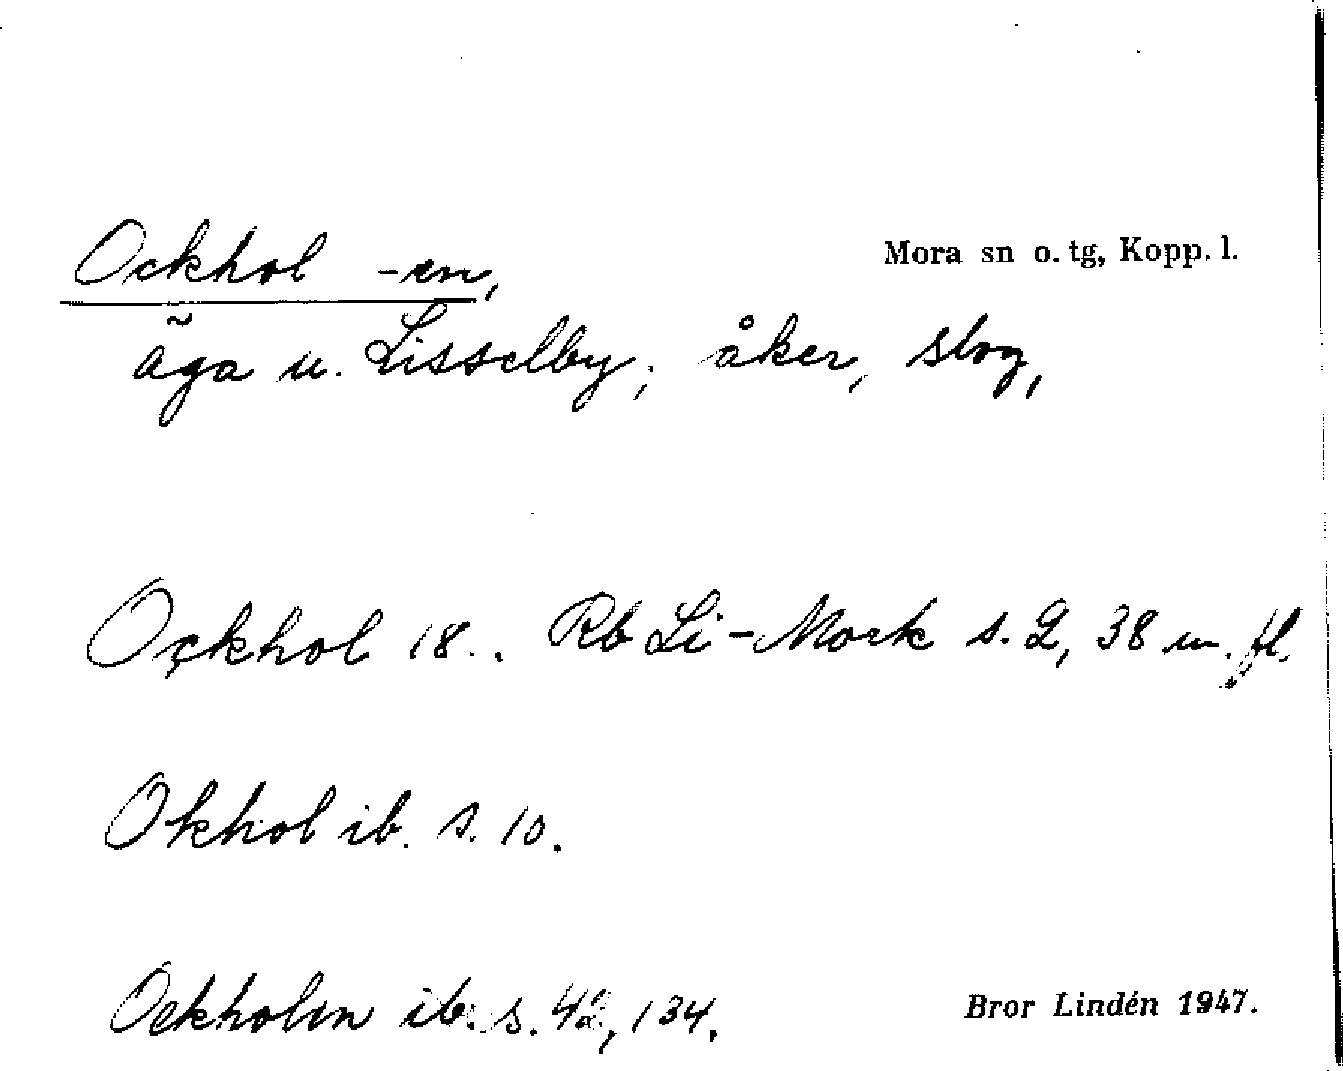 Ockhol -en,
Mora sn o. tg, Kopp. l.
äga u. Lisselby; åker, skog,
Ockhol 18.. Rb Li-Mork s. 2, 38 m. fl.
Okhol ib. s. 10.
Ockholen ib. s. 42, 134.
Bror Lindén 1947.